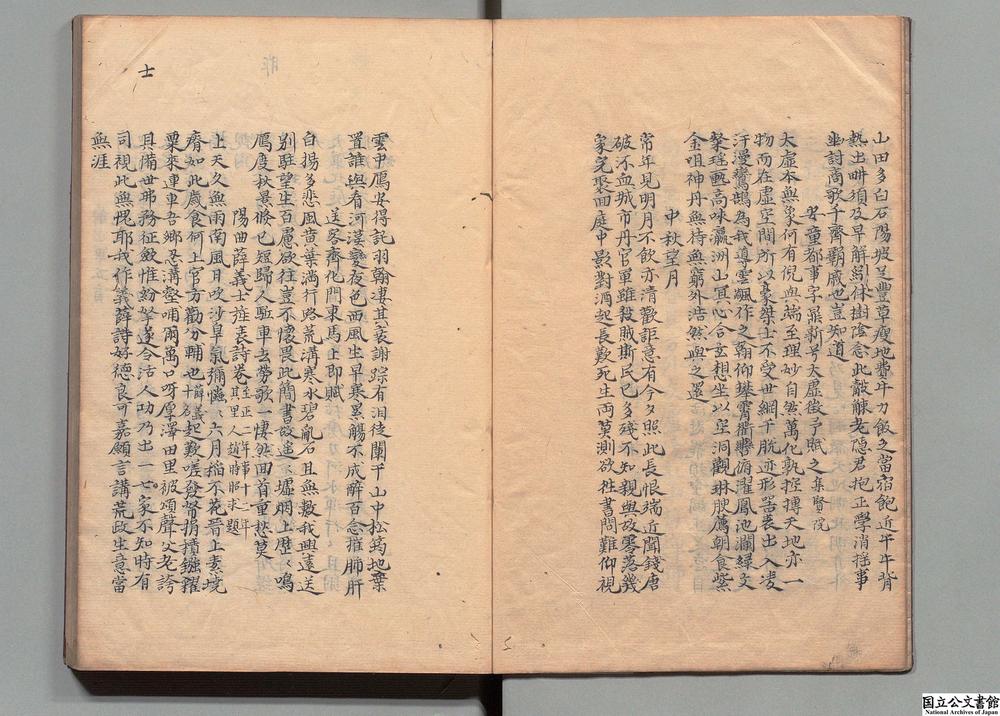 山田多白石陽坡足豐草瘦地費牛力飯之當宿飽近午牛背
熱出畊須及早解鞅休樹陰念此觳觫老隱君抱正學消搖事
幽討商歌千齊覇戚也豈知道
董都事字鼎新号大虛徵予賦之集賢院
大虛本無象何有倪與端至理妙自然萬化孰控摶天地亦一
物而在虛空間所以豪桀士不受世綱干脫迹形器表出入凌
汗漫鸞鵠為我導雲颿作之翰仰攀霄衢轡俯濯鳳池瀾繹文
粲瑤甄高味瀛洲山冥心合玄想坐以空洞觀琳腴薦朝食紫
金咀神丹無持無窮外浩然與之還
中秋望月
常年見明月不飲亦清歡詎意有今夕照此長恨端近聞錢唐
破㳅血城市丹官軍雖殺賊斯民已多殘不知親與故零落幾
家完聚面庭中影對酒起長歎死生両莫測欲徃書問難仰視
雲中鴈安得託羽翰凄其衰謝踪有泪徒闌干山中松筠地棄
置誰與看河漢變夜色西風生早寒累觴不成醉百念摧肺肝
送客齊化門東馬上即賦
白揚多悲風黄葉滿行路荒溝寒水碧亂石且無數我興遠送
别駐望生百慮欲往豈不懷畏此簡書故遙遙墟烟上歷歷鳴
鴈度秋景倏已短歸人驅車去勞歌一悽然回首重愁莫
陽曲薛義士旌表詩卷至正二年事十二年
其里人趙時昭求題
上天久無雨南風日吹沙旱氣彌惔惔六月稻不花晋上素墝
瘠如此歲食何上官方勸分輔也薛義士名起歎嗟發帑捐積鏹躍
粟來連車吾鄉忍溝壑哺爾萬口呀厚澤田里被頌聲父老誇
具備世弗務征斂惟紛挐遂令活人功乃出一士家不知時有
司視此無愧耶我作義薛詩好德良可嘉願言講荒政生意當
無涯
士
国立公文書館
National Archives of Japan